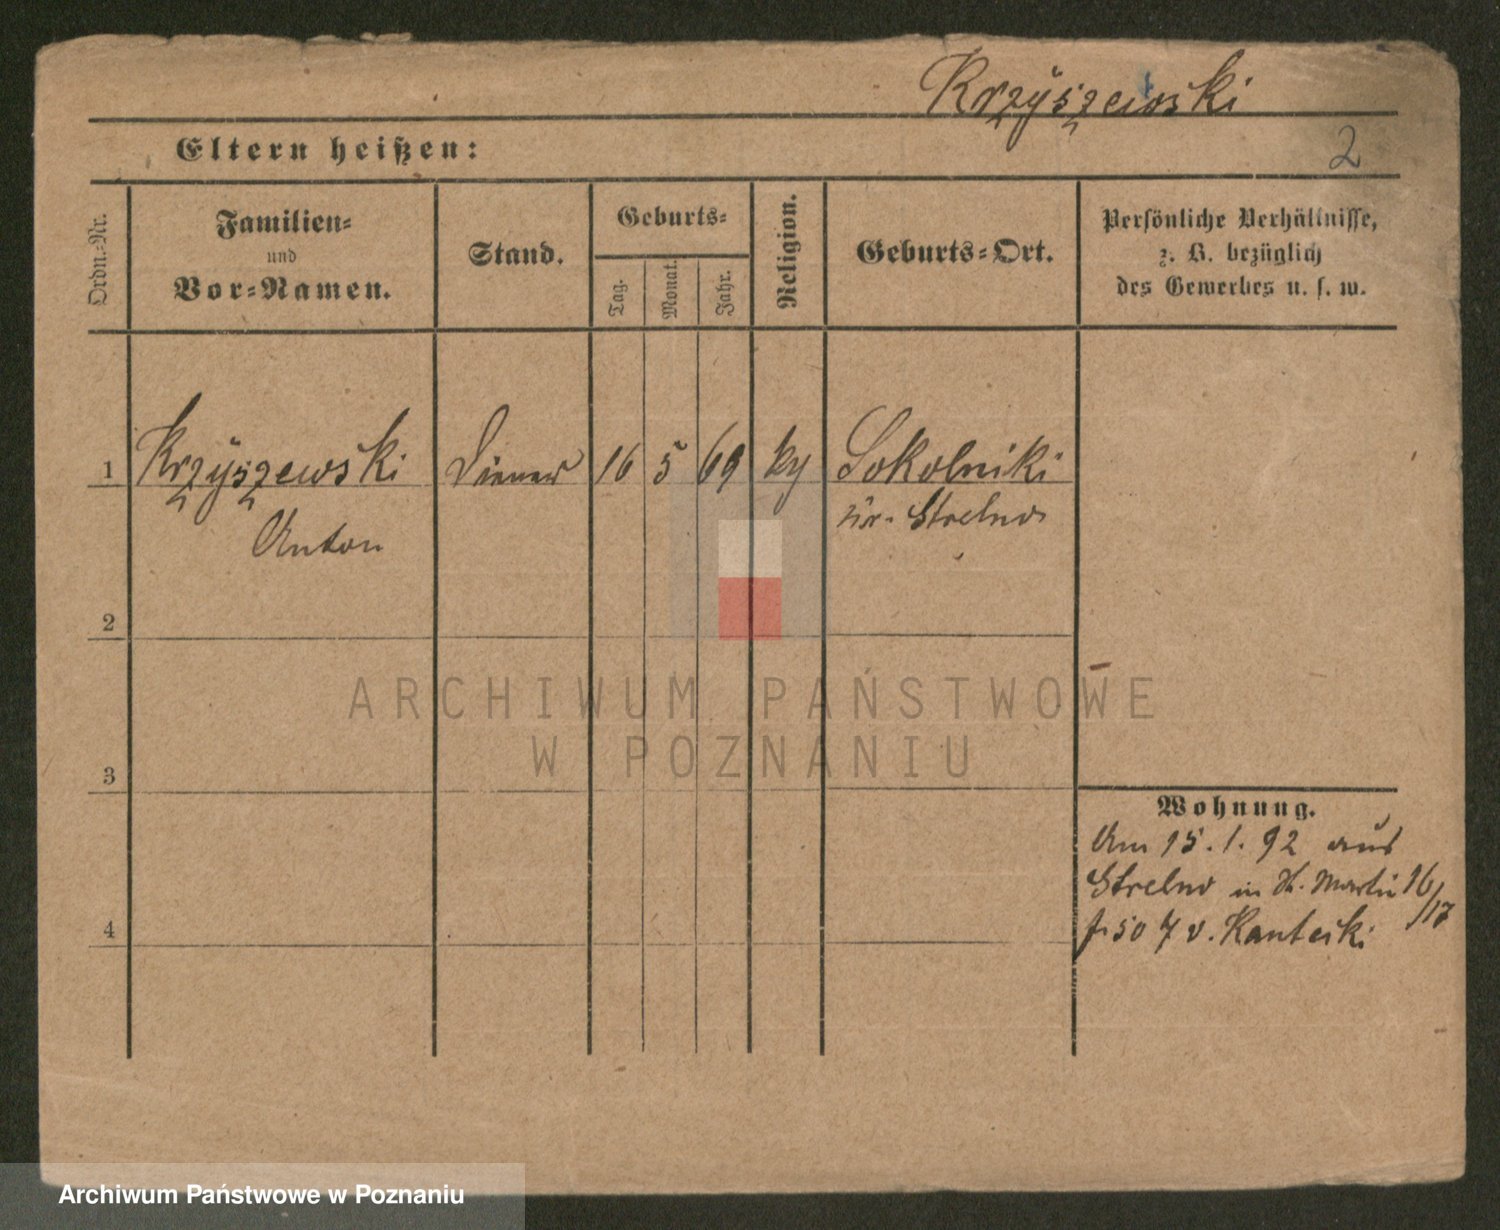 Krzyszewski
2
Eltern heißen:
Ordn.-Nr.
Familien-
und
Vor-Namen.
Stand.
Geburts-
Tag.
Monat.
Jahr.
Religion.
Geburts-Ort.
Persönliche Verhältnisse,
z. B. bezüglich
des Gewerbes u. s. w.
1 Krzyszewski Diener 16 5 69 Sokolniki
Anton Strelno
2
3
4
Wohnung.
Am 15. 1. 92 aus
Strelno in St. Martin 16/17
v. Kantecki
ARCHIWUM PAŃSTWOWE
W POZNANIU
Archiwum Państwowe w Poznaniu